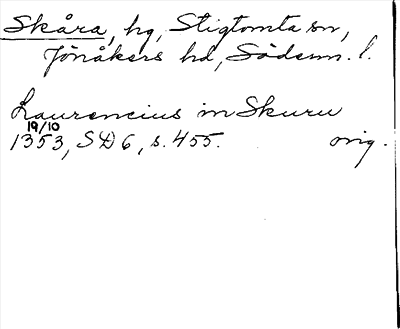 Skåra, hg, Stigtomta sn,
Jönåkers hd, Söderm. l.
Laurencius in Skuru
19/10
1353, SD 6, s. 455. orig.